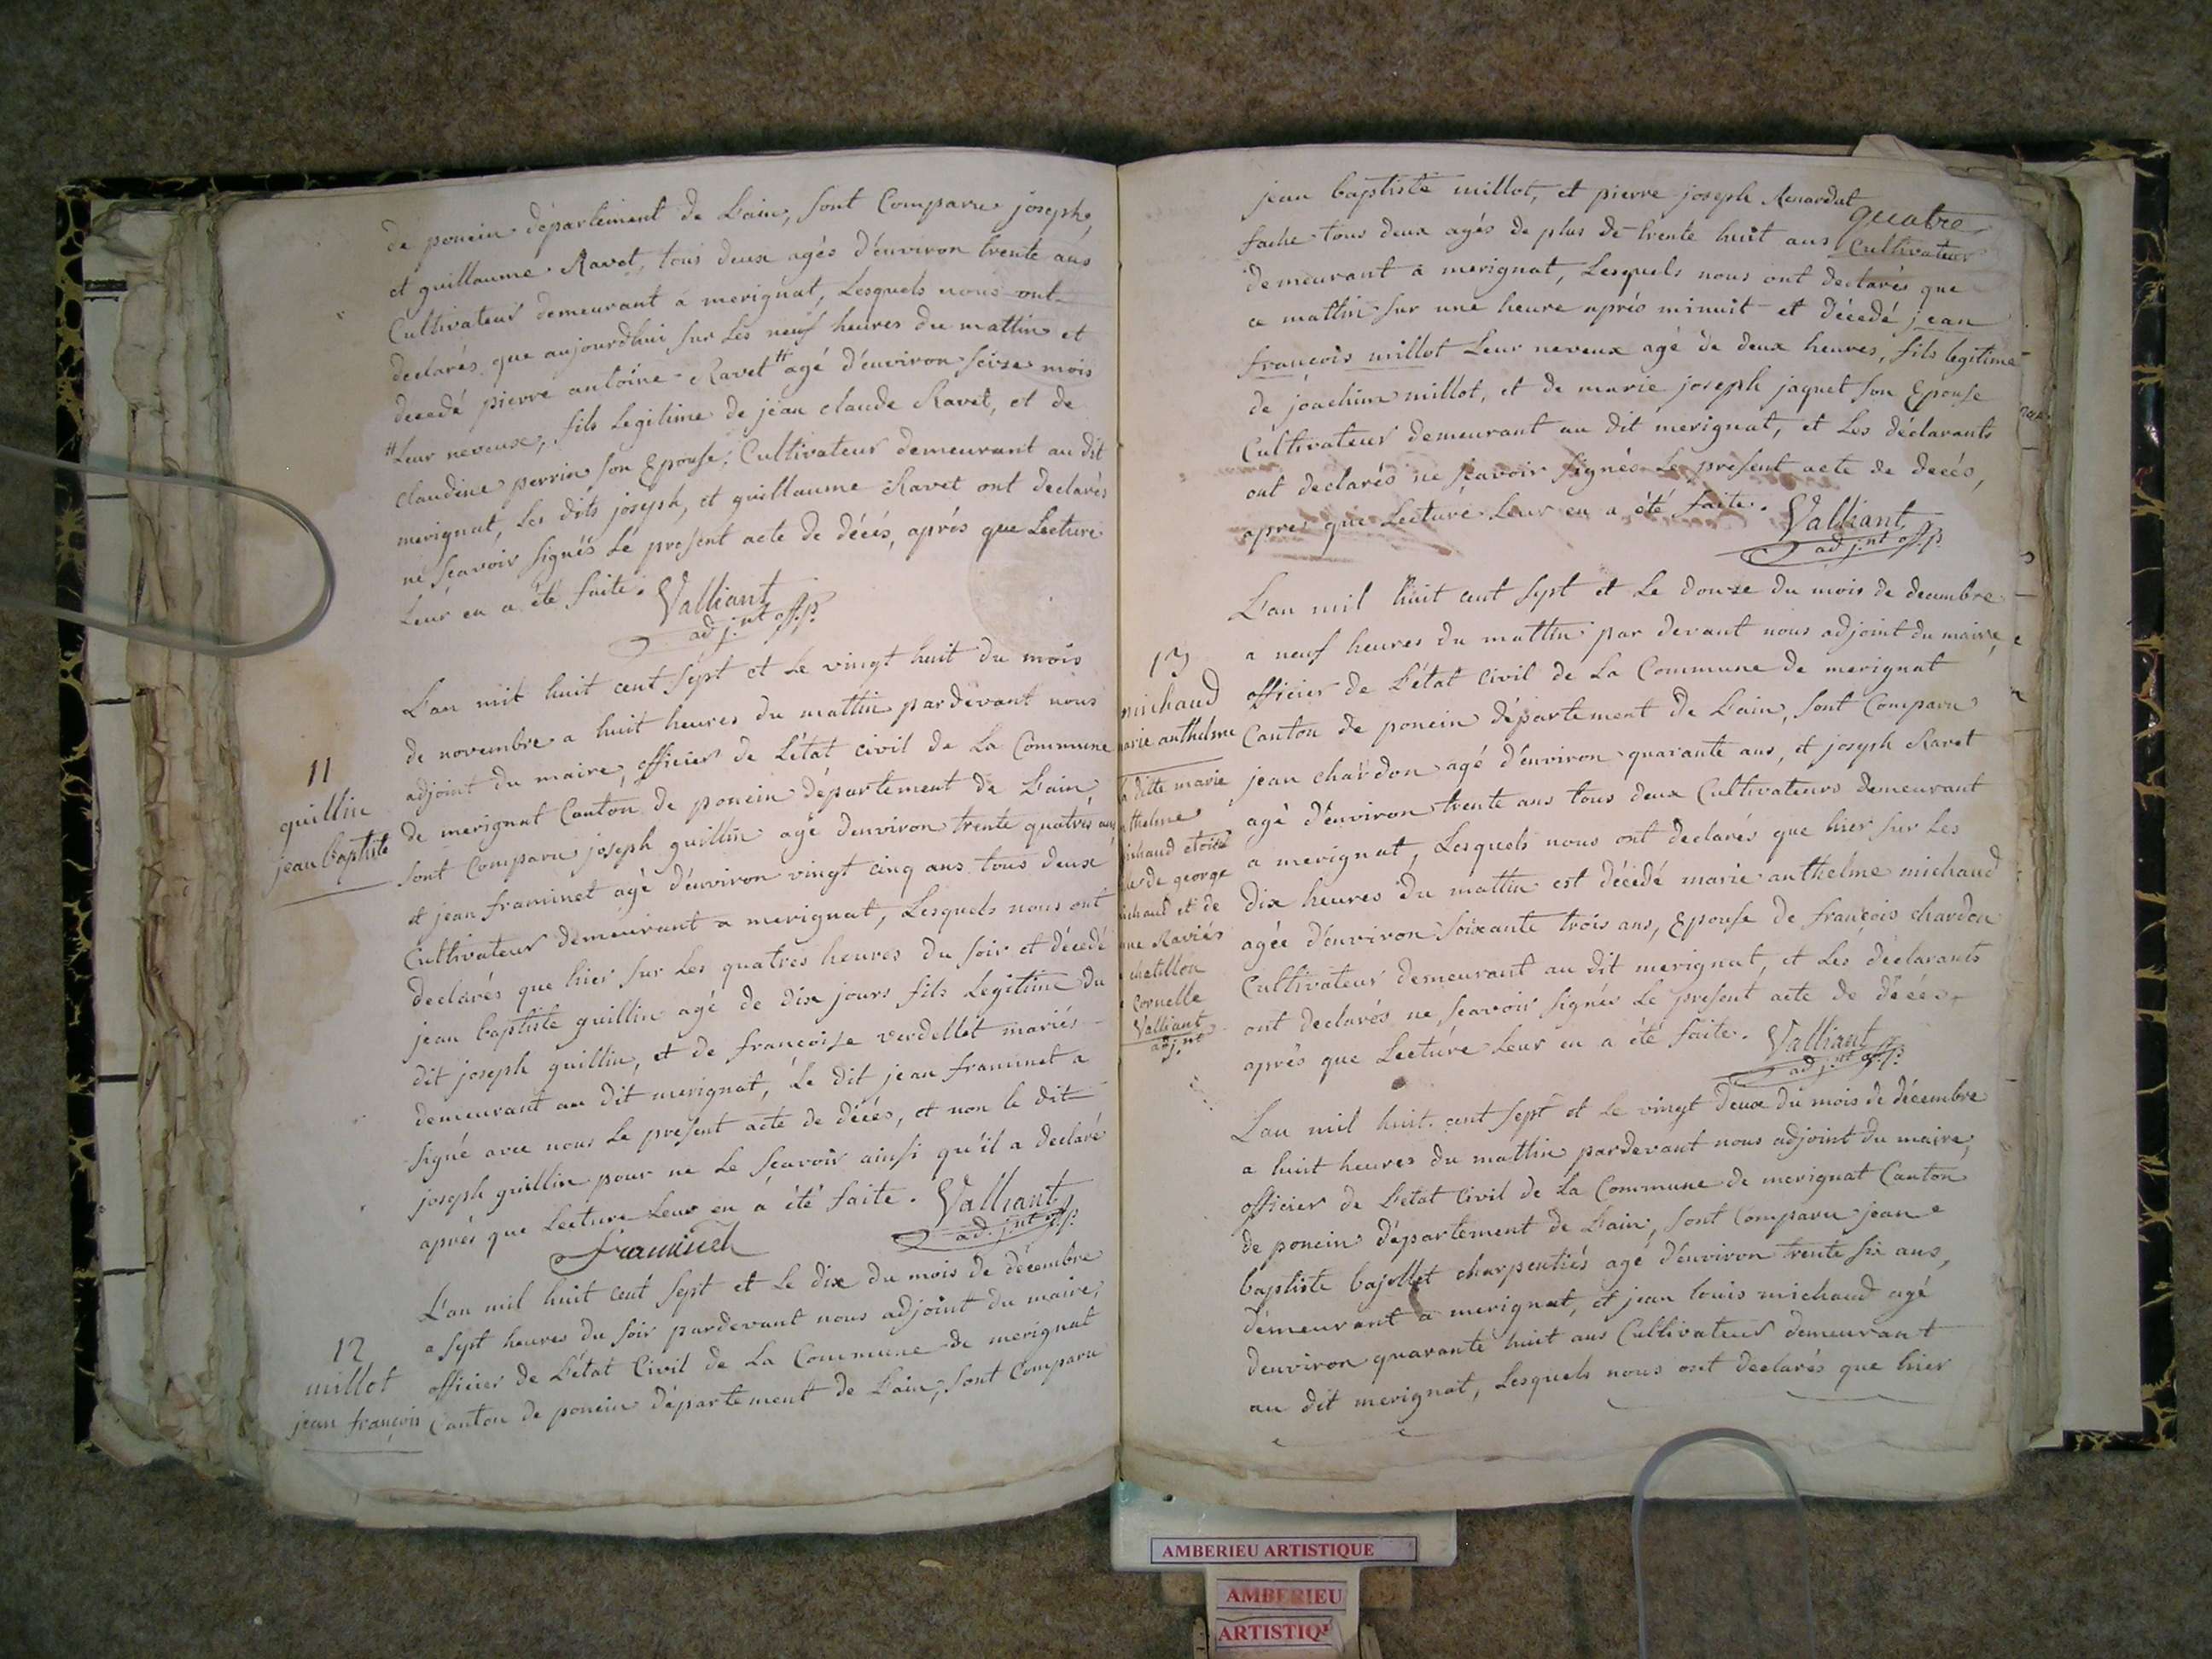 de poncin département de L'ain, sont Comparu joseph,
et guillaume Ravet, tous deux agés d'environ trente ans
Cultivateur demeurant a merignat, Lesquels nous ont
declarés que aujourdhui sur Les neuf heures du mattin et
decedé pierre antoine Ravet # agé d'environ seize mois
# Leur neveux, fils Legitime de jean claude Ravet, et de
claudine perrin son Epouse, Cultivateur demeurant au dit
merignat, Les dits joseph, et guillaume Ravet ont declarés
ne sçavoir signés Le present acte de décés, aprés que Lecture
Leur en a été faite. Valliant
adj.nt off.p.
11
guillin
jean baptiste
L'an mil huit cent sept et Le vingt huit du mois
de novembre a huit heures du mattin pardevant nous
adjoint du maire, officier de L'état civil de La Commune
de merignat Canton de poncin département de L'ain
sont Comparu joseph guillin agé d'environ trente quatres ans
et jean framinet agé d'environ vingt cinq ans tous deux
Cultivateur demeurant a merignat, Lesquels nous ont
declarés que hier sur Les quatres heures du soir et décedé
jean baptiste guillin agé de dix jours fils Legitime du
dit joseph guillin, et de francoise verdellet mariés
demeurant au dit merignat, Le dit jean framinet a
signé avec nous Le present acte de décés, et non le dit
joseph guillin pour ne Le sçavoir ainsi qu'il a declaré
aprés que Lecture Leur en a été faite. Valliant
framinet adj.nt off.p.
12
millot
jean françois
L'an mil huit cent sept et Le dix du mois de décembre
a sept heures du soir pardevant nous adjoint du maire,
officier de L'état Civil de La Commune de merignat
Canton de poncin département de L'ain, sont Comparu
quatre
jean baptiste millot, et pierre joseph Renardat
fache tous deux agés de plus de trente huit ans Cultivateur
demeurant a merignat, Lesquels nous ont declarés que
ce mattin sur une heure aprés minuit et décedé jean
françois millot Leur neveux agé de deux heures, fils legitime
de joachim millot, et de marie joseph jaquet son Epouse
Cultivateur demeurant au dit merignat, et Les déclarants
ont declarés ne sçavoir signés Le present acte de decés,
apres que Lecture Leur en a été faite. Valliant
adj.nt off.p.
13
michaud
marie anthelme
L'an mil huit cent sept et Le douze du mois de decembre
a neuf heures du mattin par devant nous adjoint du maire,
officier de L'état civil de La Commune de merignat
Canton de poncin département de L'ain, sont Comparu
jean chardon agé d'environ quarante ans, et joseph Ravet
agé d'environ trente ans tous deux Cultivateurs demeurant
a merignat, Lesquels nous ont declarés que hier sur Les
dix heures du mattin est décedé marie anthelme michaud
agée d'environ soixante trois ans, Epouse de françois chardon
Cultivateur demeurant au dit merignat, et Les déclarants
ont declarés ne sçavoir signés Le present acte de décés,
aprés que Lecture Leur en a été faite. Valliant
adj.nt off.p.
ditte marie
thelme
de george
et de
Raviér
chatillon
Cornelle
Valliant
adj.nt
L'an mil huit cent sept et Le vingt deux du mois de décembre
a huit heures du mattin pardevant nous adjoint du maire,
officier de L'état Civil de La Commune de merignat Canton
de poncin département de L'ain, sont Comparu jean
baptiste bajollet charpentiés agé d'environ trente six ans,
demeurant a merignat, et jean louis michaud agé
d'environ quarante huit ans Cultivateur demeurant
au dit merignat, Lesquels nous ont declarés que hier
AMBERIEU ARTISTIQUE
AMBERIEU
ARTISTIQ